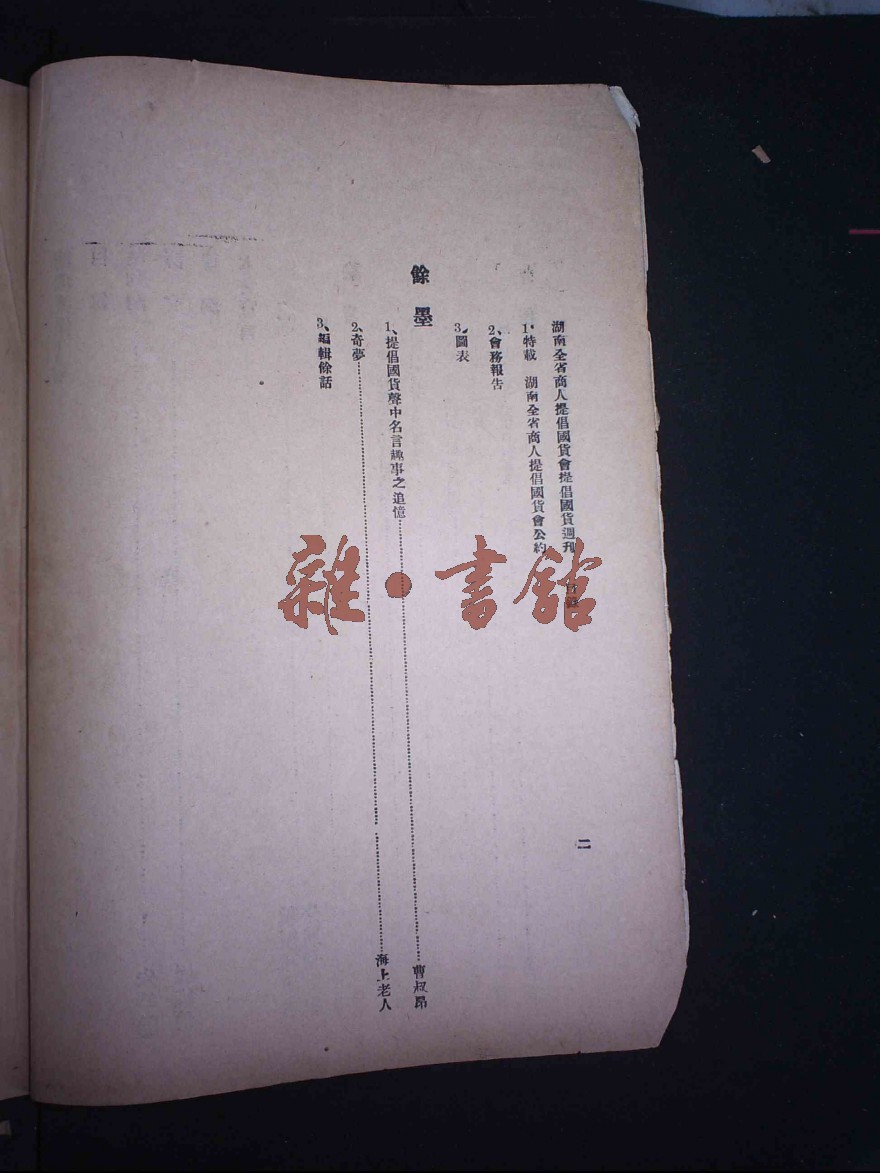 湖南全省商人提倡國貨會提倡國貨週刊 目錄 二
1、特載 湖南全省商人提倡國貨會公約
2、會務報告
3、圖表
餘墨
1、提倡國貨聲中名言趣事之追憶……曹叔昂
2、奇夢……海上老人
3、編輯餘話
雜·書館